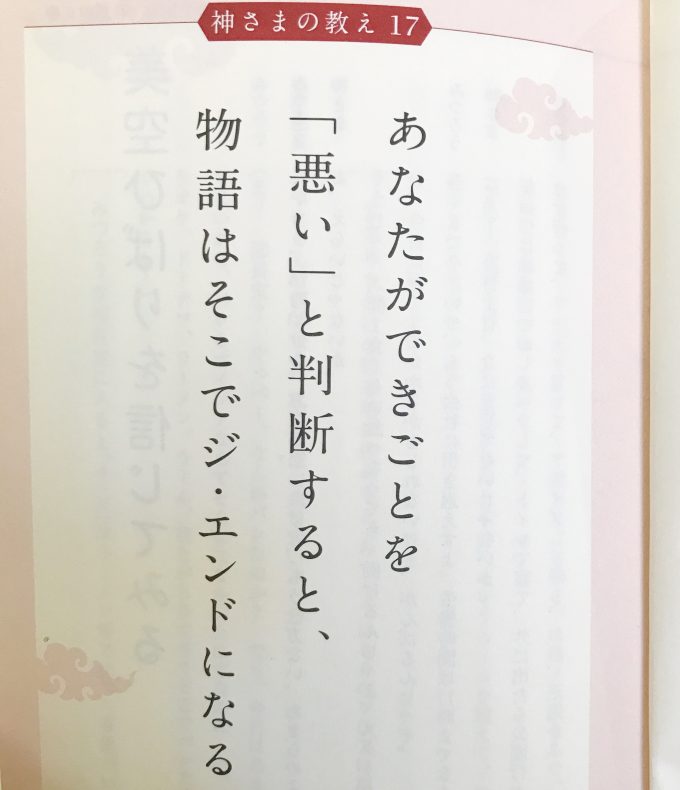 神さまの教え 17
あなたができごとを
「悪い」と判断すると、
物語はそこでジ・エンドになる